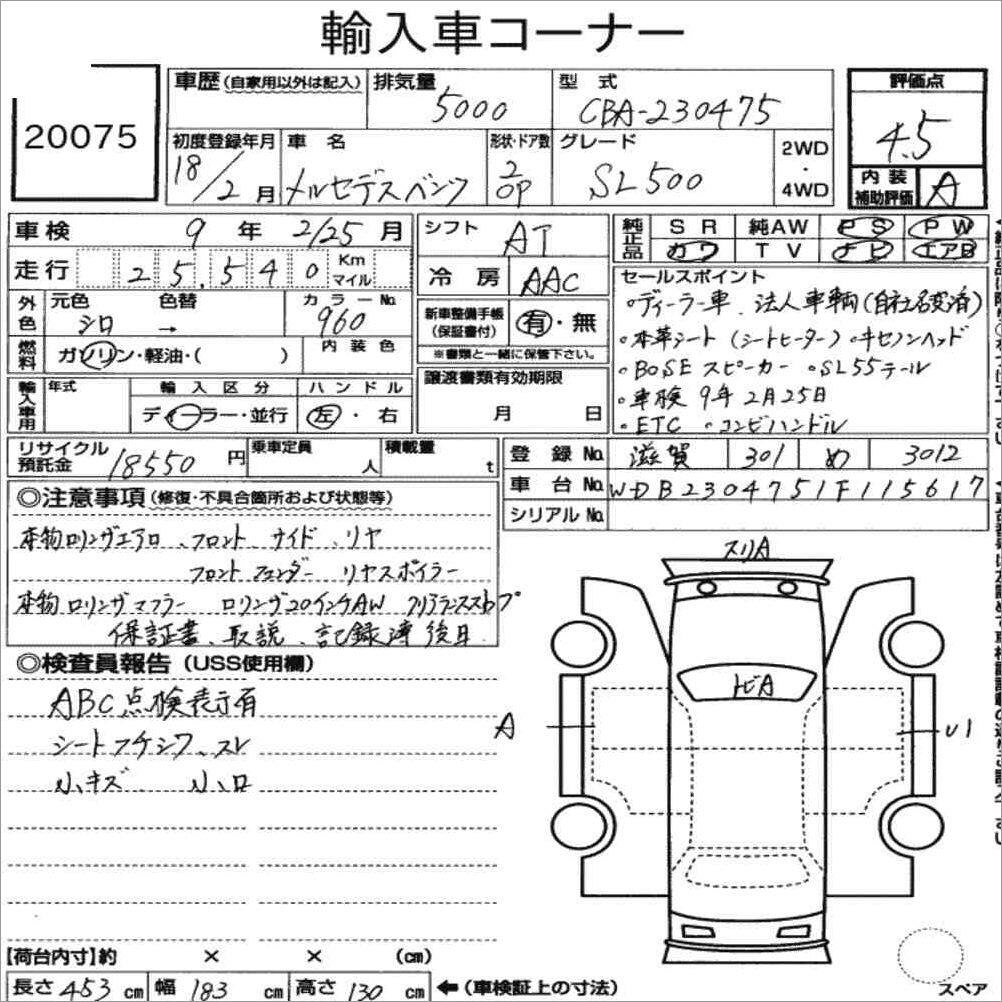 輸入車コーナー
20075
車歴(自家用以外は記入) 排気量 5000 型式 CBA-230475 評価点 4.5
初度登録年月 18/2月 車名 メルセデスベンツ 形状・ドア数 2 OP グレード SL500 2WD・4WD 内装補助評価 A
車検 9年 2/25月 シフト AT 純正品 SR 純AW PS PW
走行 25,540 Km マイル 冷房 AAC カワ TV ナビ エアB
外色 元色 シロ 色替 → カラーNo. 960
燃料 ガソリン・軽油・( ) 内装色
新車整備手帳(保証書付) 有・無
※書類と一緒に保管下さい。
輸入車用 年式 輸入区分 ディーラー・並行 ハンドル 左・右
譲渡書類有効期限 月 日
セールスポイント
○ディーラー車、法人車輌(自社名変済)
○本革シート(シートヒーター)○キセノンヘッド
○BOSEスピーカー ○SL55テール
○車検 9年2月25日
○ETC ○コンビハンドル
リサイクル預託金 18550円 乗車定員 人 積載量 t
登録No. 滋賀 301 め 3012
車台No. WDB2304751F115617
シリアルNo.
◎注意事項(修復・不具合箇所および状態等)
本物ロリンザエアロ、フロント サイド、リヤ
フロント フェンダー リヤスポイラー
本物ロリンザマフラー ロリンザ20インチAW クリアランスストップ
保証書、取説、記録簿後日
◎検査員報告(USS使用欄)
ABC点検表示有
シートフケシワ、スレ
小キズ 小凹
スリA
トビA
A
【荷台内寸】約 × × (cm)
長さ 453 cm 幅 183 cm 高さ 130 cm ←(車検証上の寸法)
スペア